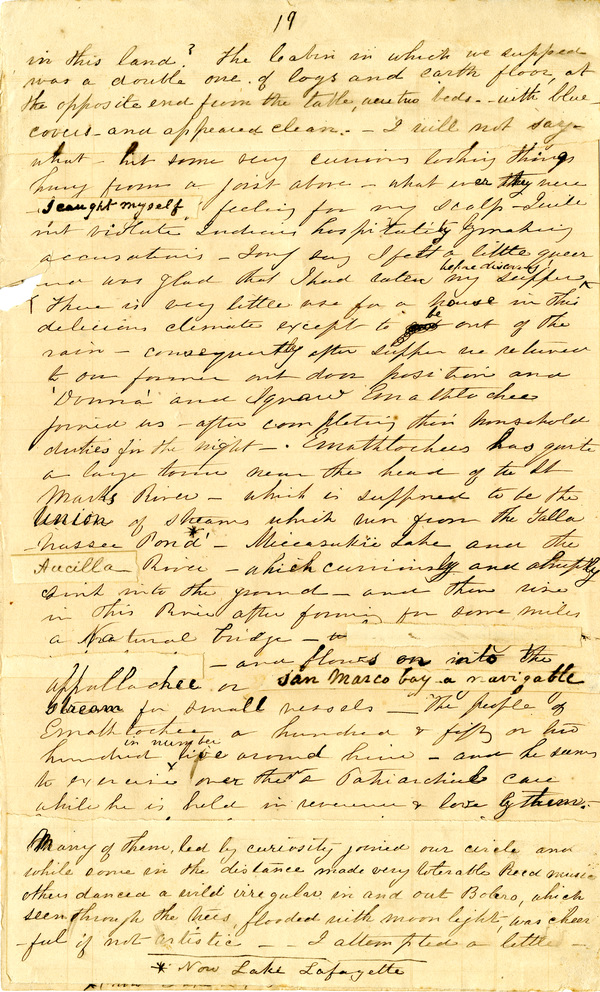 19
in this land? The Cabin in which we supped
was a double one of logs and earth floor, at
the opposite end from the table, were two beds - with blue
covers - and appeared clean. - I will not say
what - but some very curious looking things
hung from a joist above - what ever they were
- I caught myself feeling for my scalp -
not violate Indian hospitality by making
accusations - I felt a little queer
and was glad that I had eaten my supper
before discovery
There is very little use for a house in this
delicious climate except to be out of the
rain - consequently after supper we returned
to our former out door position and
'Donna' and Emathlochee
joined us - after completing their household
duties for the night - . Emathlochees has quite
a large town near the head of the St
Marks River - which is supposed to be the
Union of streams which run from the Talla
-hassee Pond* - Miccasukie Lake and the
Aucilla River - which curiously and abruptly
sink into the ground - and then rise
in this River after forming for some miles
a Natural bridge -
- and flows on into the
appallachee or San Marco bay a navigable
Stream for small vessels - The people of
Emathlochee a hundred & fifty or two
hundred in number live around him - and he seems
to exercise over them a Patriarchical care
while he is held in reverence & love by them. -
Many of them, led by curiosity joined our circle and
while some in the distance made very tolerable Reed music
others danced a wild irregular in and out Bolero, which
seen through the trees, flooded with moon light, was cheer
-ful if not artistic - - I attempted a little -
* Now Lake Lafayette